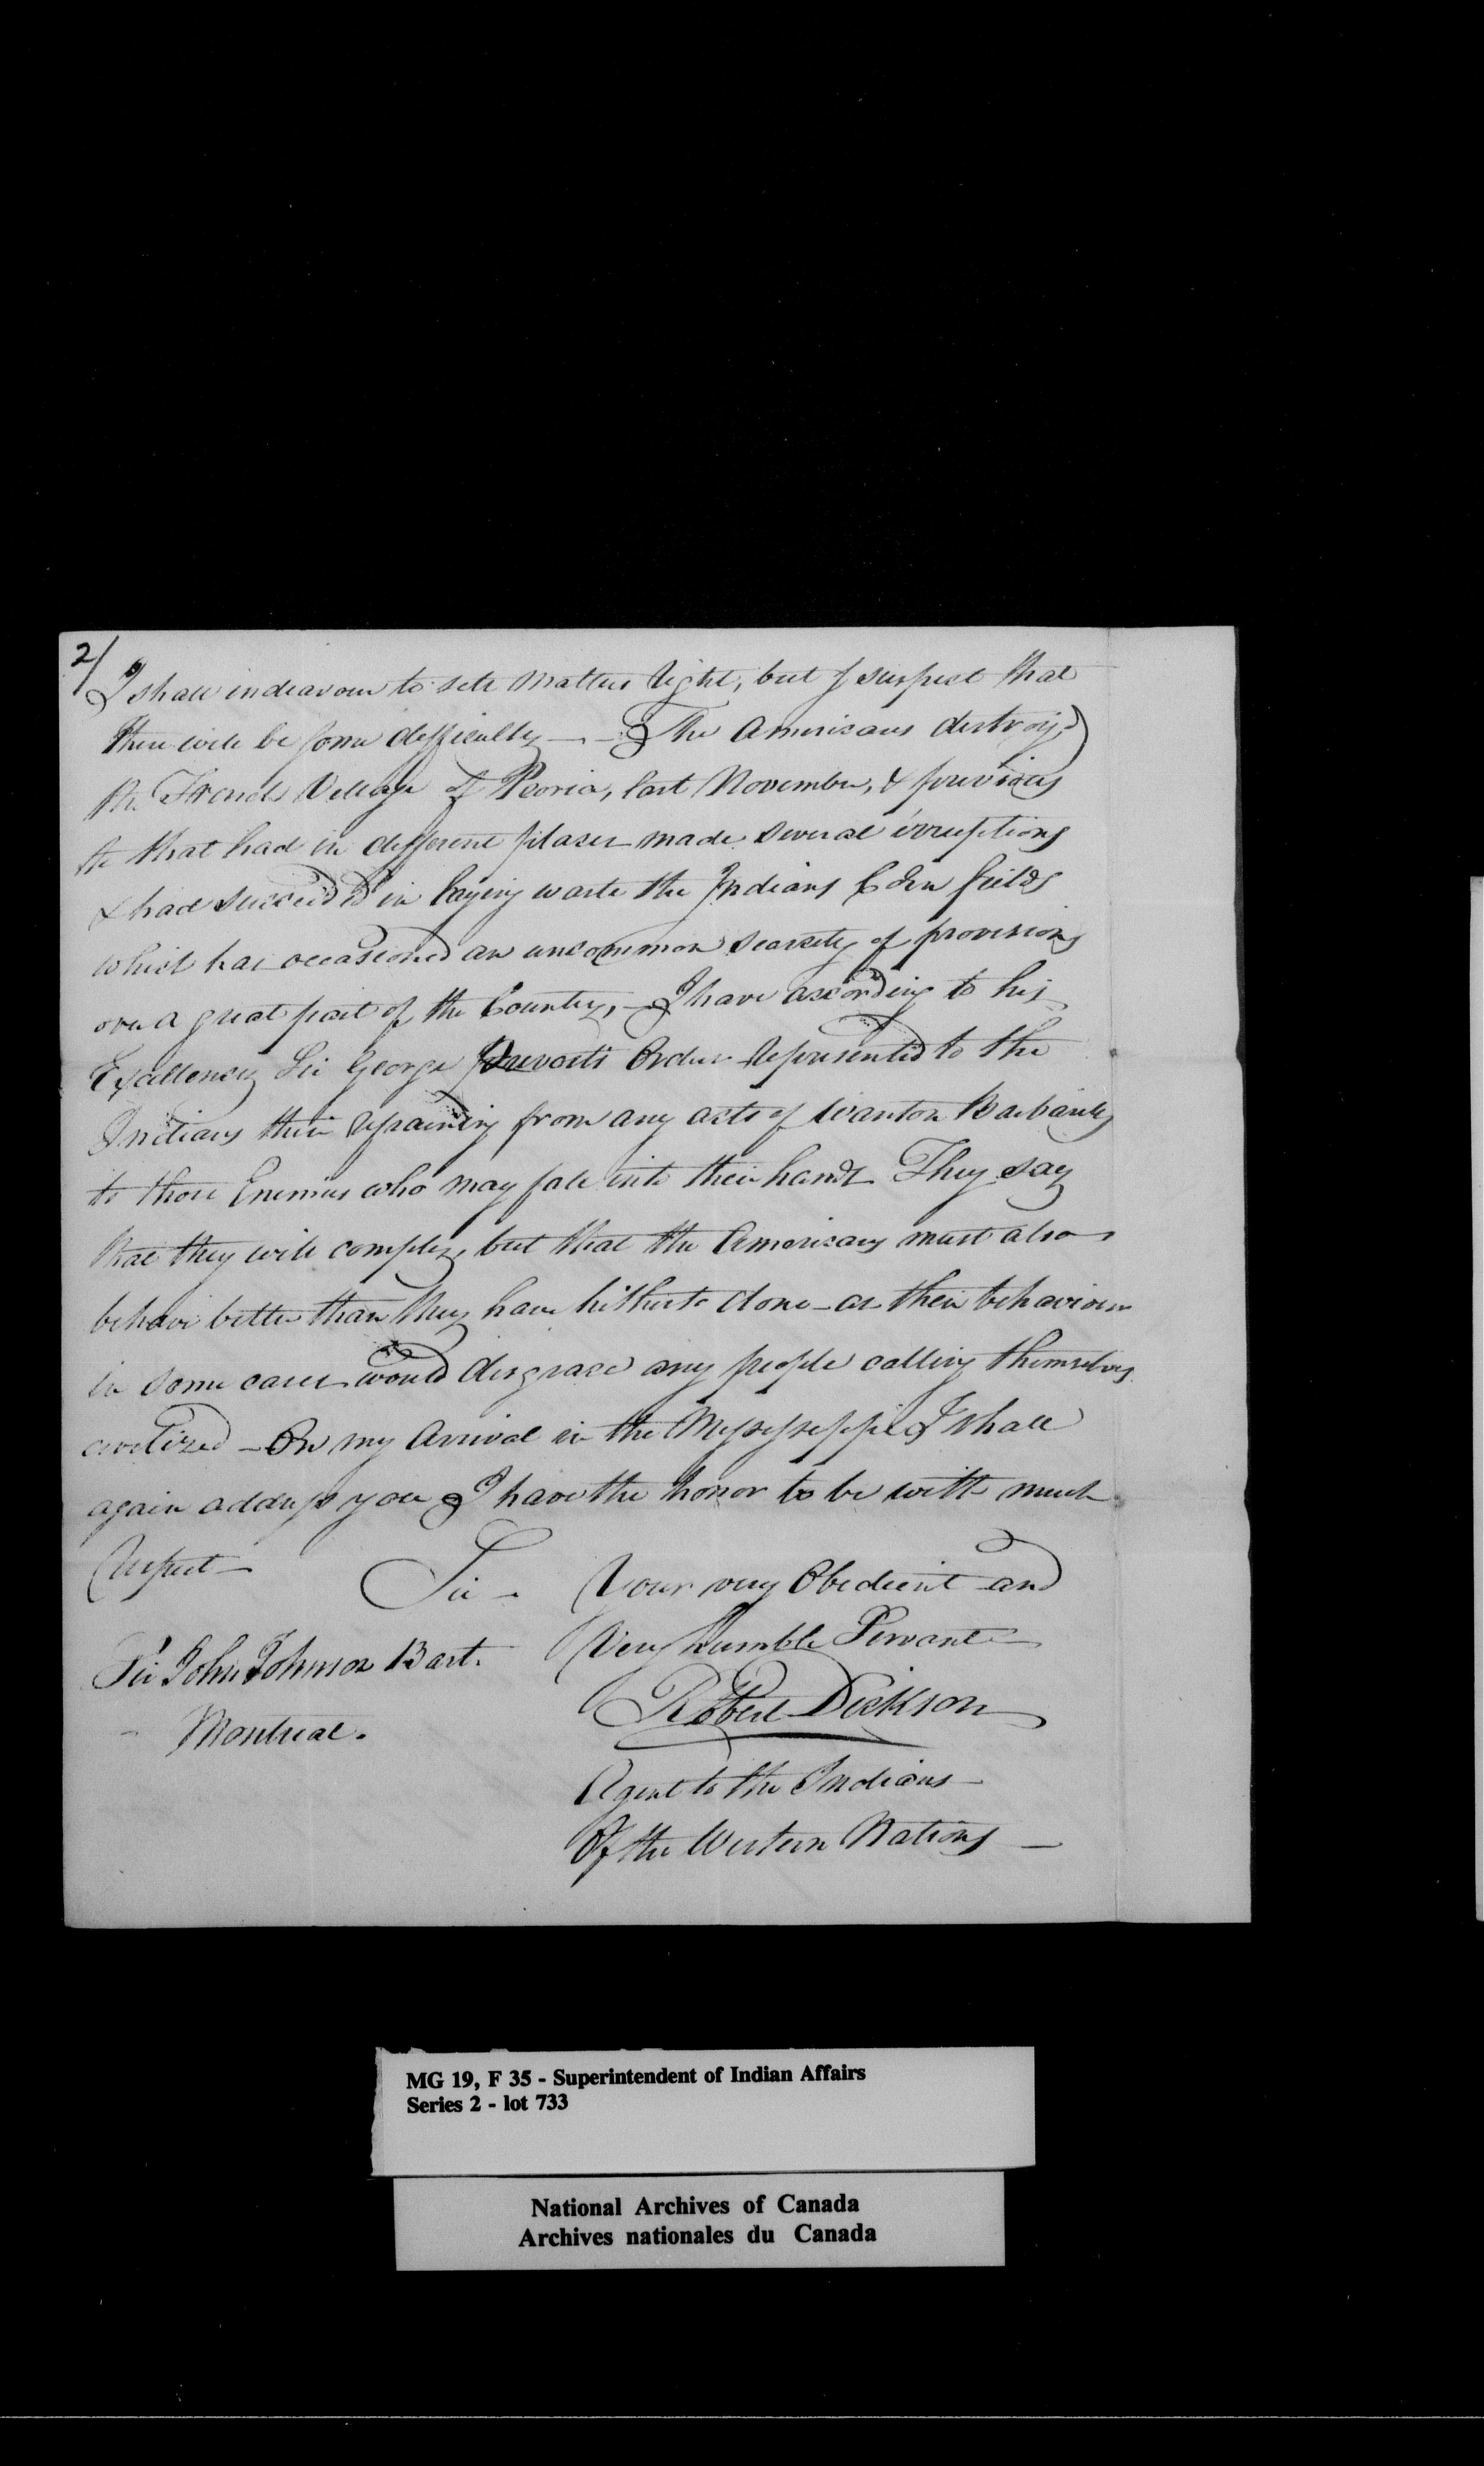 2/
I shall indeavour to sett matters right, but I suspect that
there will be some difficulty — The Americans destroy'd
the French Village of Peoria, last November, & previous
to that had in different places made several irruptions
& had succeeded in laying waste the Indians Corn fields
which has occasioned an uncommon scarcity of provisions
over a great part of the Country, — I have according to his
Excellency Sir George Prevosts Order Represented to the
Indians their refraining from any acts of Wanton Barbarity
to those Enemies who may fall into their hands They say
that they will comply, but that the Americans must also
behave better than they have hitherto done — as their behaviour
in some cases would disgrace any people calling themselves
civilized — On my Arrival in the Mississippi I shall
again address you I have the honor to be with much
Respect — Sir — Your very Obedient and
Very humble Servant —
Sir John Johnson Bart.
Robert Dickson
Montreal.
Agent to the Indians —
Of the Western Nations —
MG 19, F 35 - Superintendent of Indian Affairs
Series 2 - lot 733
National Archives of Canada
Archives nationales du Canada